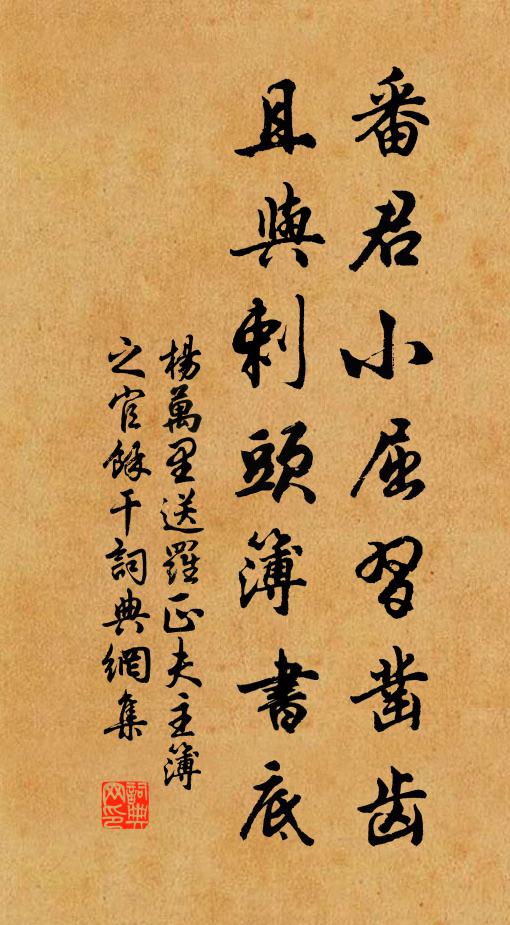 番君小屈習鑿齒
且與刺頭簿書底
楊萬里送羅正夫主簿
之官餘干詞典網集
詞典網印